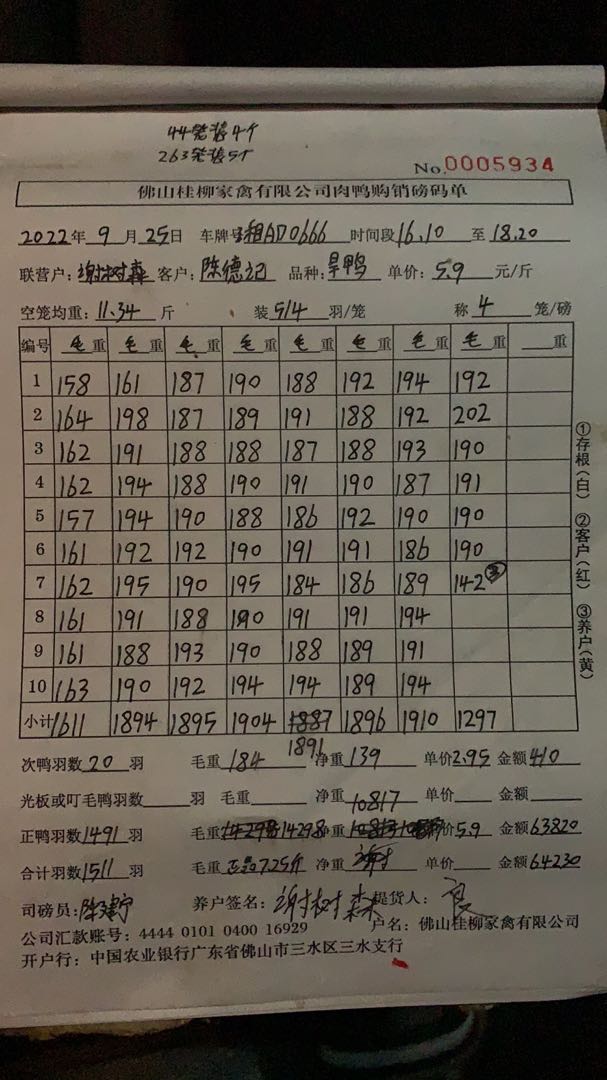 44笼装4个
263笼装5个
No.0005934
佛山桂柳家禽有限公司肉鸭购销磅码单
2022年9月25日 车牌号:粗AD0666 时间段16.10至18.20
联营户:谢树森 客户:陈德记 品种:旱鸭 单价:5.9元/斤
空笼均重:11.34斤 装5/4羽/笼 称4笼/磅
编号 毛重 毛重 毛重 毛重 毛重 毛重 毛重 毛重 重
1 158 161 187 190 188 192 194 192
2 164 198 187 189 191 188 192 202
3 162 191 188 188 187 188 193 190
4 162 194 188 190 191 190 187 191
5 157 194 190 188 186 192 190 190
6 161 192 192 190 191 191 186 190
7 162 195 190 195 184 186 189 142③
8 161 191 188 190 191 191 194
9 161 188 193 190 188 189 191
10 163 190 192 194 194 189 194
小计 1611 1894 1895 1904 1887 1896 1910 1297
1891
①存根(白) ②客户(红) ③养户(黄)
次鸭羽数20羽 毛重184 净重139 单价2.95 金额410
光板或叮毛鸭羽数 羽 毛重 净重10817 单价 金额
正鸭羽数1491羽 毛重14298 净重 单价5.9 金额63820
合计羽数1511羽 毛重正品7.25斤 净重谢树 单价 金额64230
司磅员: 养户签名:谢树森 提货人:
公司汇款账号:4444 0101 0400 16929 户名:佛山桂柳家禽有限公司
开户行:中国农业银行广东省佛山市三水区三水支行